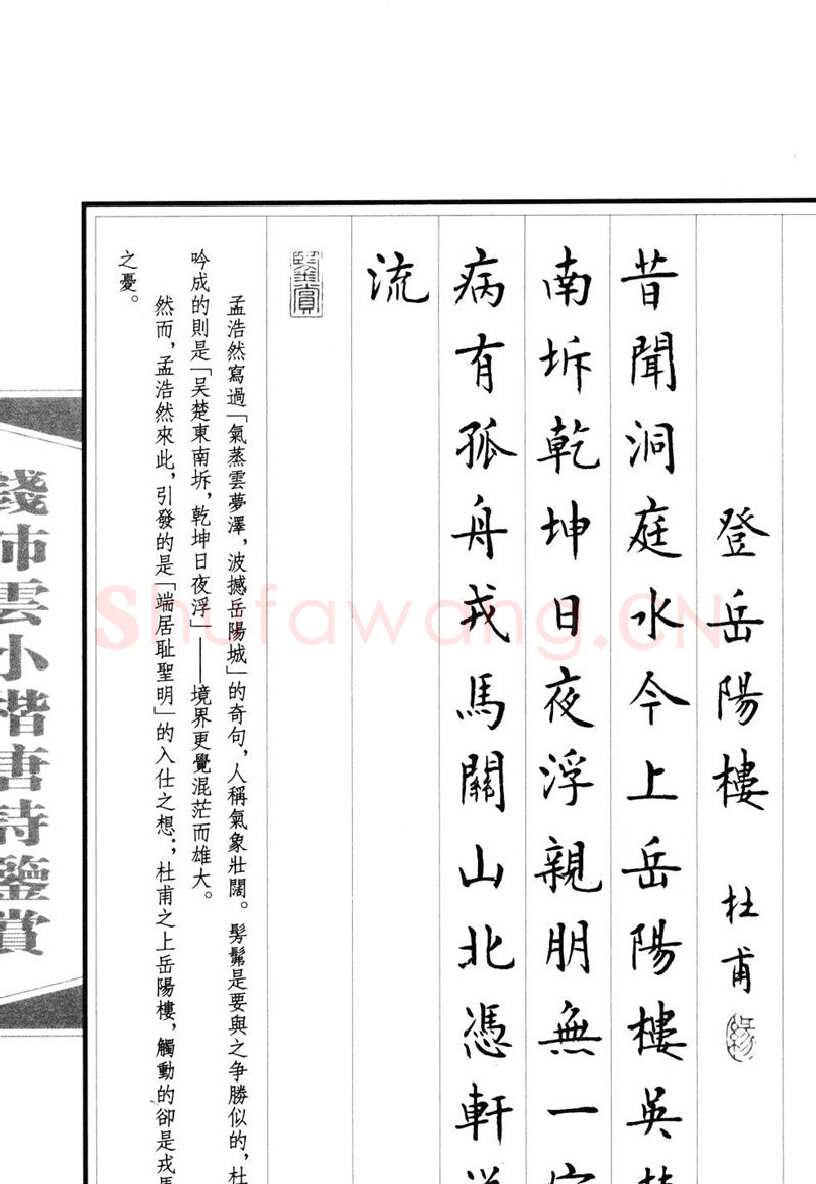 登岳陽樓 杜甫
昔聞洞庭水今上岳陽樓吳
南坼乾坤日夜浮親朋無一
病有孤舟戎馬關山北憑軒
流
鑒賞
孟浩然寫過「氣蒸雲夢澤，波撼岳陽城」的奇句，人稱氣象壯闊。髣髴是要與之争勝似的，杜
吟成的則是「吴楚東南坼，乾坤日夜浮」——境界更覺混茫而雄大。
然而，孟浩然來此，引發的是「端居耻聖明」的入仕之想；杜甫之上岳陽樓，觸動的卻是戎馬
之憂。
錢沛雲小楷唐詩鑒賞
Shufawang.CN